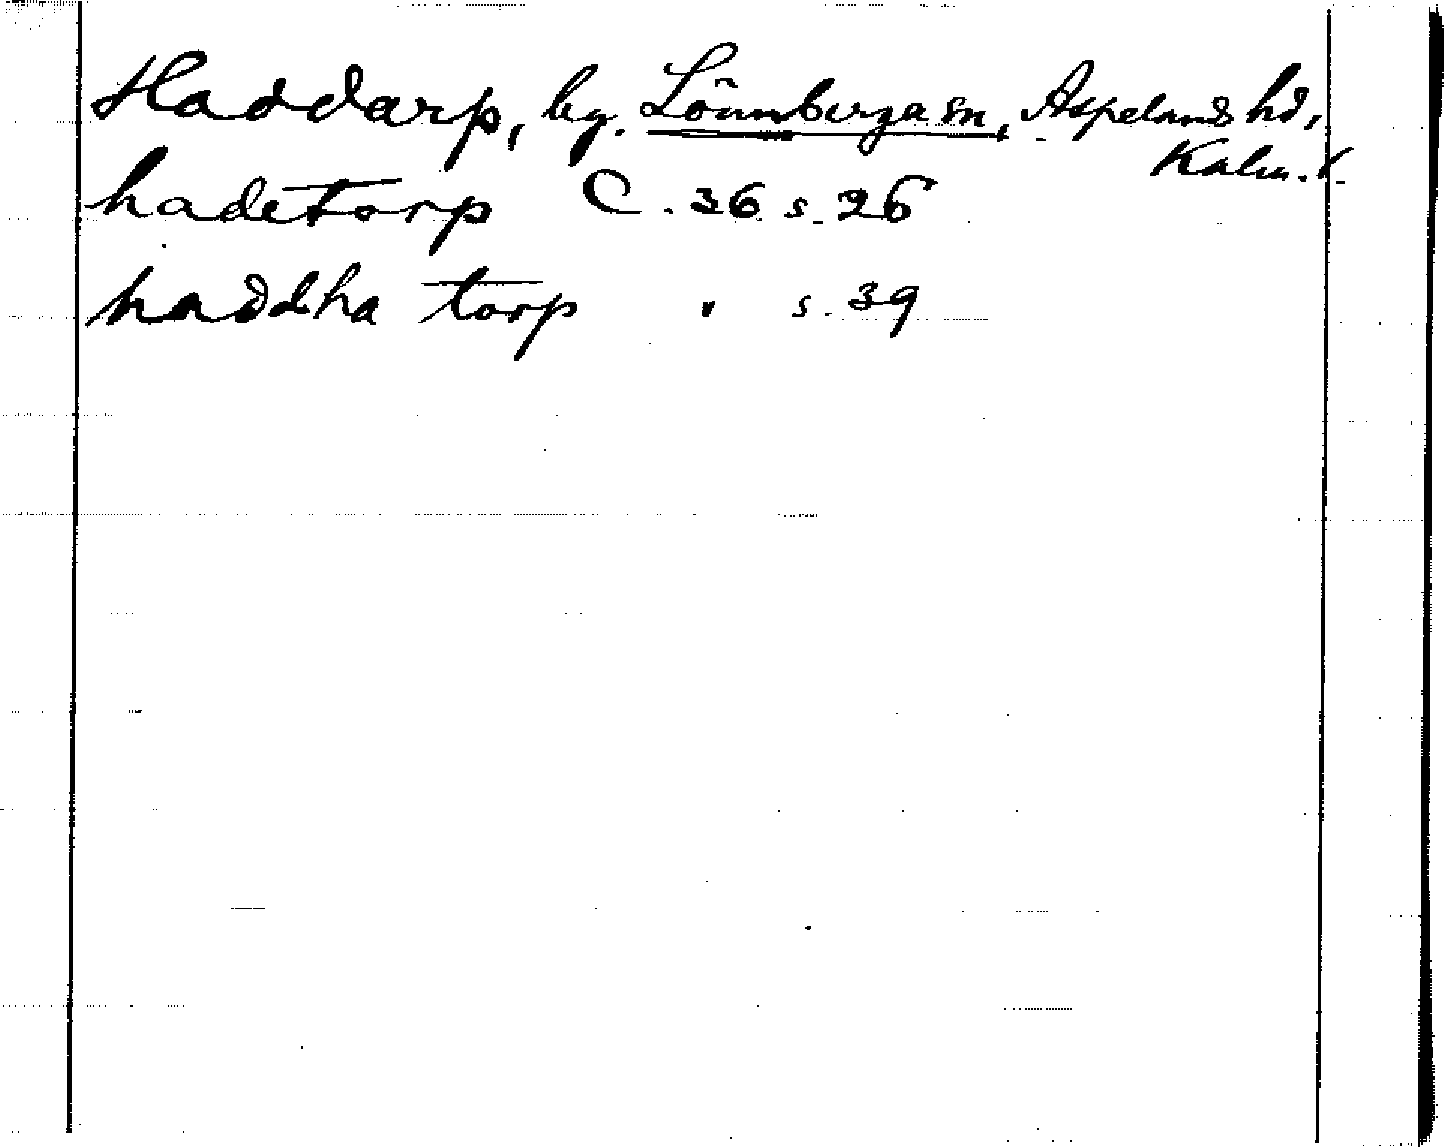 Haddarp, by. Lönnberga sn, Aspelands hd,
Kalm. l.
hadetorp C. 36 s. 26
haddha torp " s. 39